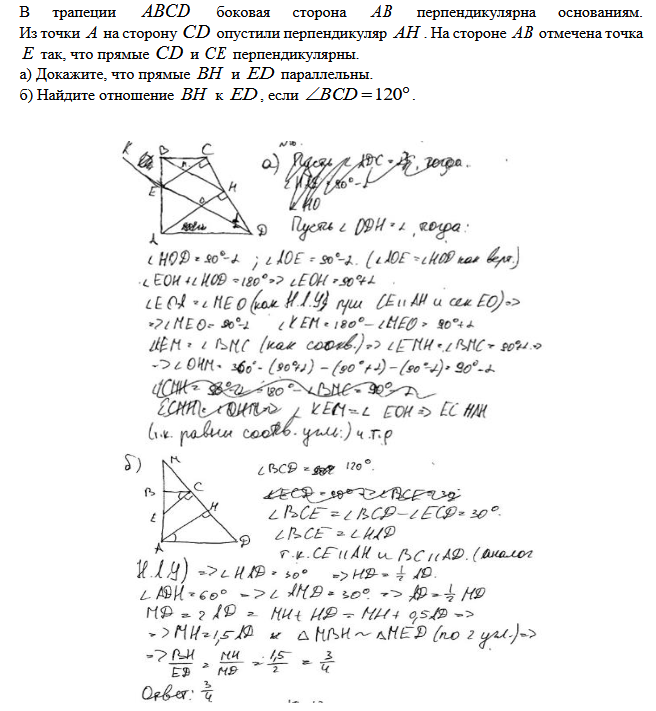 В трапеции ABCD боковая сторона AB перпендикулярна основаниям.
Из точки A на сторону CD опустили перпендикуляр AH . На стороне AB отмечена точка
E так, что прямые CD и CE перпендикулярны.
а) Докажите, что прямые BH и ED параллельны.
б) Найдите отношение BH к ED , если ∠BCD = 120° .
K B C
E H
A D
а) Пусть ∠ ADC =
Пусть ∠ ODH = α, тогда:
∠HOD = 90°-α ; ∠AOE = 90°-α. (∠AOE = ∠HOD как верт.)
∠EOH + ∠HOD = 180° => ∠EOH = 90°+α
= ∠MEO (как Н.Л.У) при CE || AH и сек EO) =>
=> ∠MEO = 90°-α ∠KEM = 180° - ∠MEO = 90°+α
= ∠BMC (как соотв.) => ∠EMH = ∠BMC = 90°+α =>
=> ∠OHM = 360° - (90°+α) - (90°+α) - (90°-α) = 90°-α
∠KEM = ∠ EOH => EC || AH
(т.к. равны соотв. углы) ч.т.д
б)
M
B C
E H
A D
∠BCD = 120°.
∠BCE = ∠BCD - ∠ECD = 30°.
∠BCE = ∠HAD
т.к. CE || AH и BC || AD. (аналог
Н.Л.У) => ∠HAD = 30° => HD = 1/2 AD.
∠ADH = 60° => ∠AMD = 30° => AD = 1/2 MD
MD = 2AD = MH + HD = MH + 0,5AD =>
=> MH = 1,5AD и △MBH ~ △MED (по 2 угл.) =>
=> BH/ED = MH/MD = 1,5/2 = 3/4
Ответ: 3/4